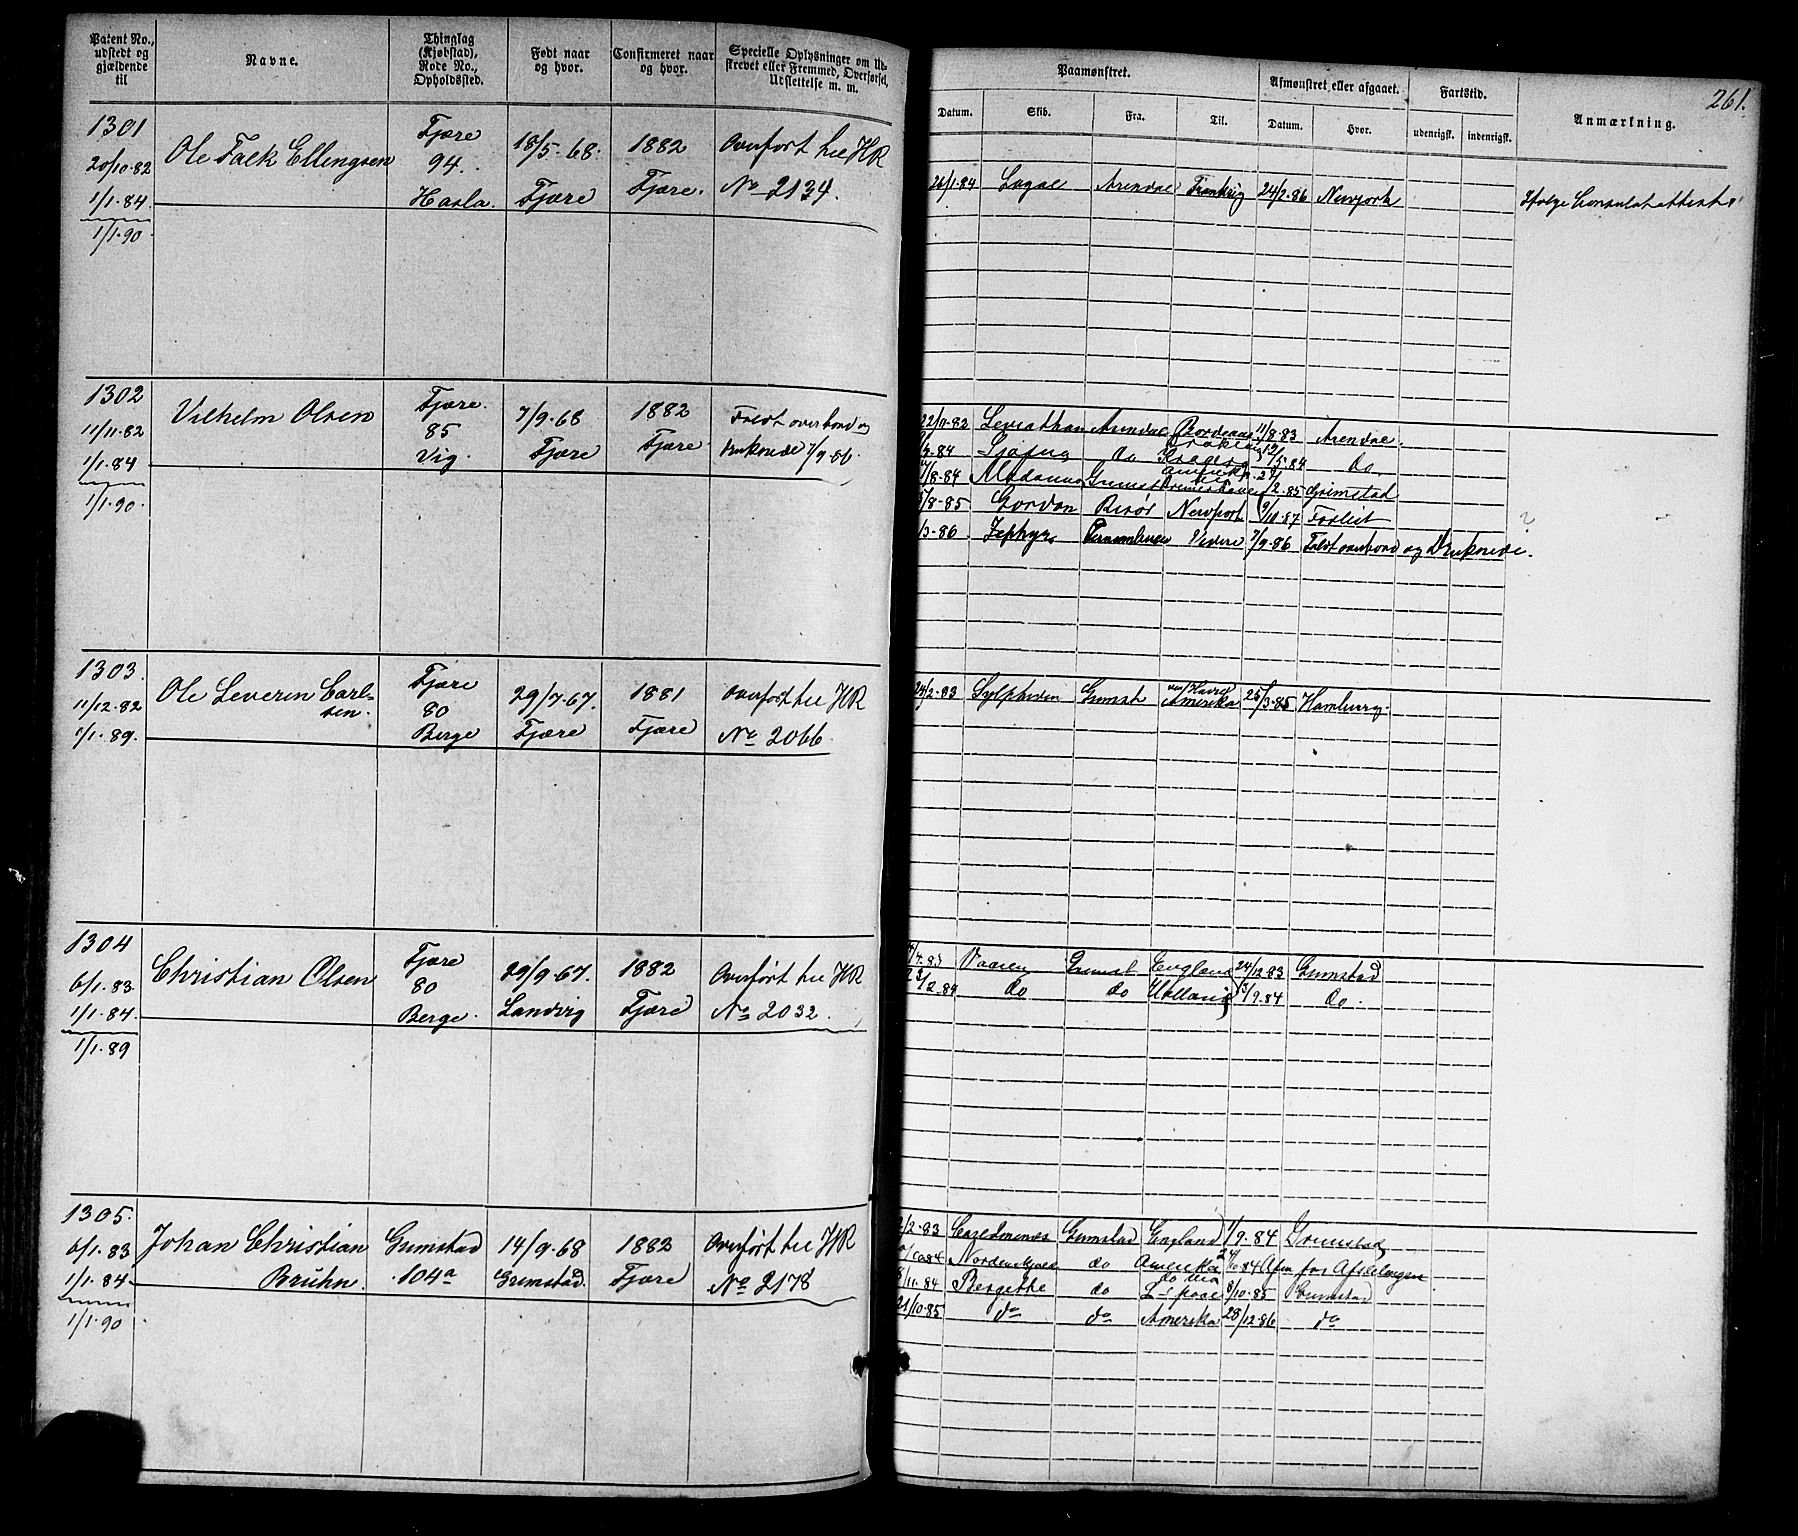 Patent No., udstedt og gjældende til
Navne.
Thinglag (Kjøbstad), Rode No., Opholdssted.
Født naar og hvor.
Confirmeret naar og hvor.
Specielle Oplysninger om Udskrevet eller Fremmed, Overførsel, Udslettelse m. m.
Paamønstret.
Afmønstret eller afgaaet.
Fartstid.
Anmærkning.
261.
Datum.
Skib.
Fra.
Til.
Datum.
Hvor.
udenrigsk.
indenrigsk.
1301
20/10-82
1/1.84.
1/1.90.
Ole Falk Ellingsen
Fjære
94.
Hasla.
18/5-68.
Fjære
1882
Fjære.
Overført til HR
No 2134.
26/1-84 Arendal Frankrig 24/2-86 Newyork
Ifølge Consulatattest
1302
11/11-82
1/1.84
1/1.90.
Vilhelm Olsen
Fjære.
85
Vig.
7/9-68
Fjære
1882
Fjære.
Faldt overbord og
druknede 7/9-86.
22/9-82 Leviathan Arendal Bordeaux 11/8-83 Arendal.
do 5-84 do
8-84 2.85 Grimstad
8-85 Gordon Risør Newport 9/10-87 Forlist
3-86 Zephyr Pernambuco 7/9-86 Faldt overbord og druknede.
1303.
11/12-82
1/1.89.
Ole Severin Carl-
sen.
Fjære
80
Berge
29/7-67.
Fjære
1881
Fjære
Overført til HR
No 2066
24/2-83 Sylphiden Grimst via Havre Amerika 25/3-85 Hamburg.
1304
6/1.83.
1/1.84.
1/1.89
Christian Olsen
Fjære
80
Berge.
29/9-67.
Landvig
1882
Fjære
Overført til HR
No 2032.
4.83 Vaaren Grimst England 24/12-83 Grimstad
2.84 do do 3/9.84 do.
1305.
6/1.83
1/1.84.
1/1.90
Johan Christian
Bruhn.
Grimstad
104a
14/9-68
Grimstad.
1882
Fjære
Overført til HR
No 2178
2/2-83 Grimstad England 1/9.84 Grimstad
do Amerika 24/10 84 Afm for
11.84 Bergithe do 8/10-85 Grimstad
21/10-85 do do Amerika 28/12-86 do